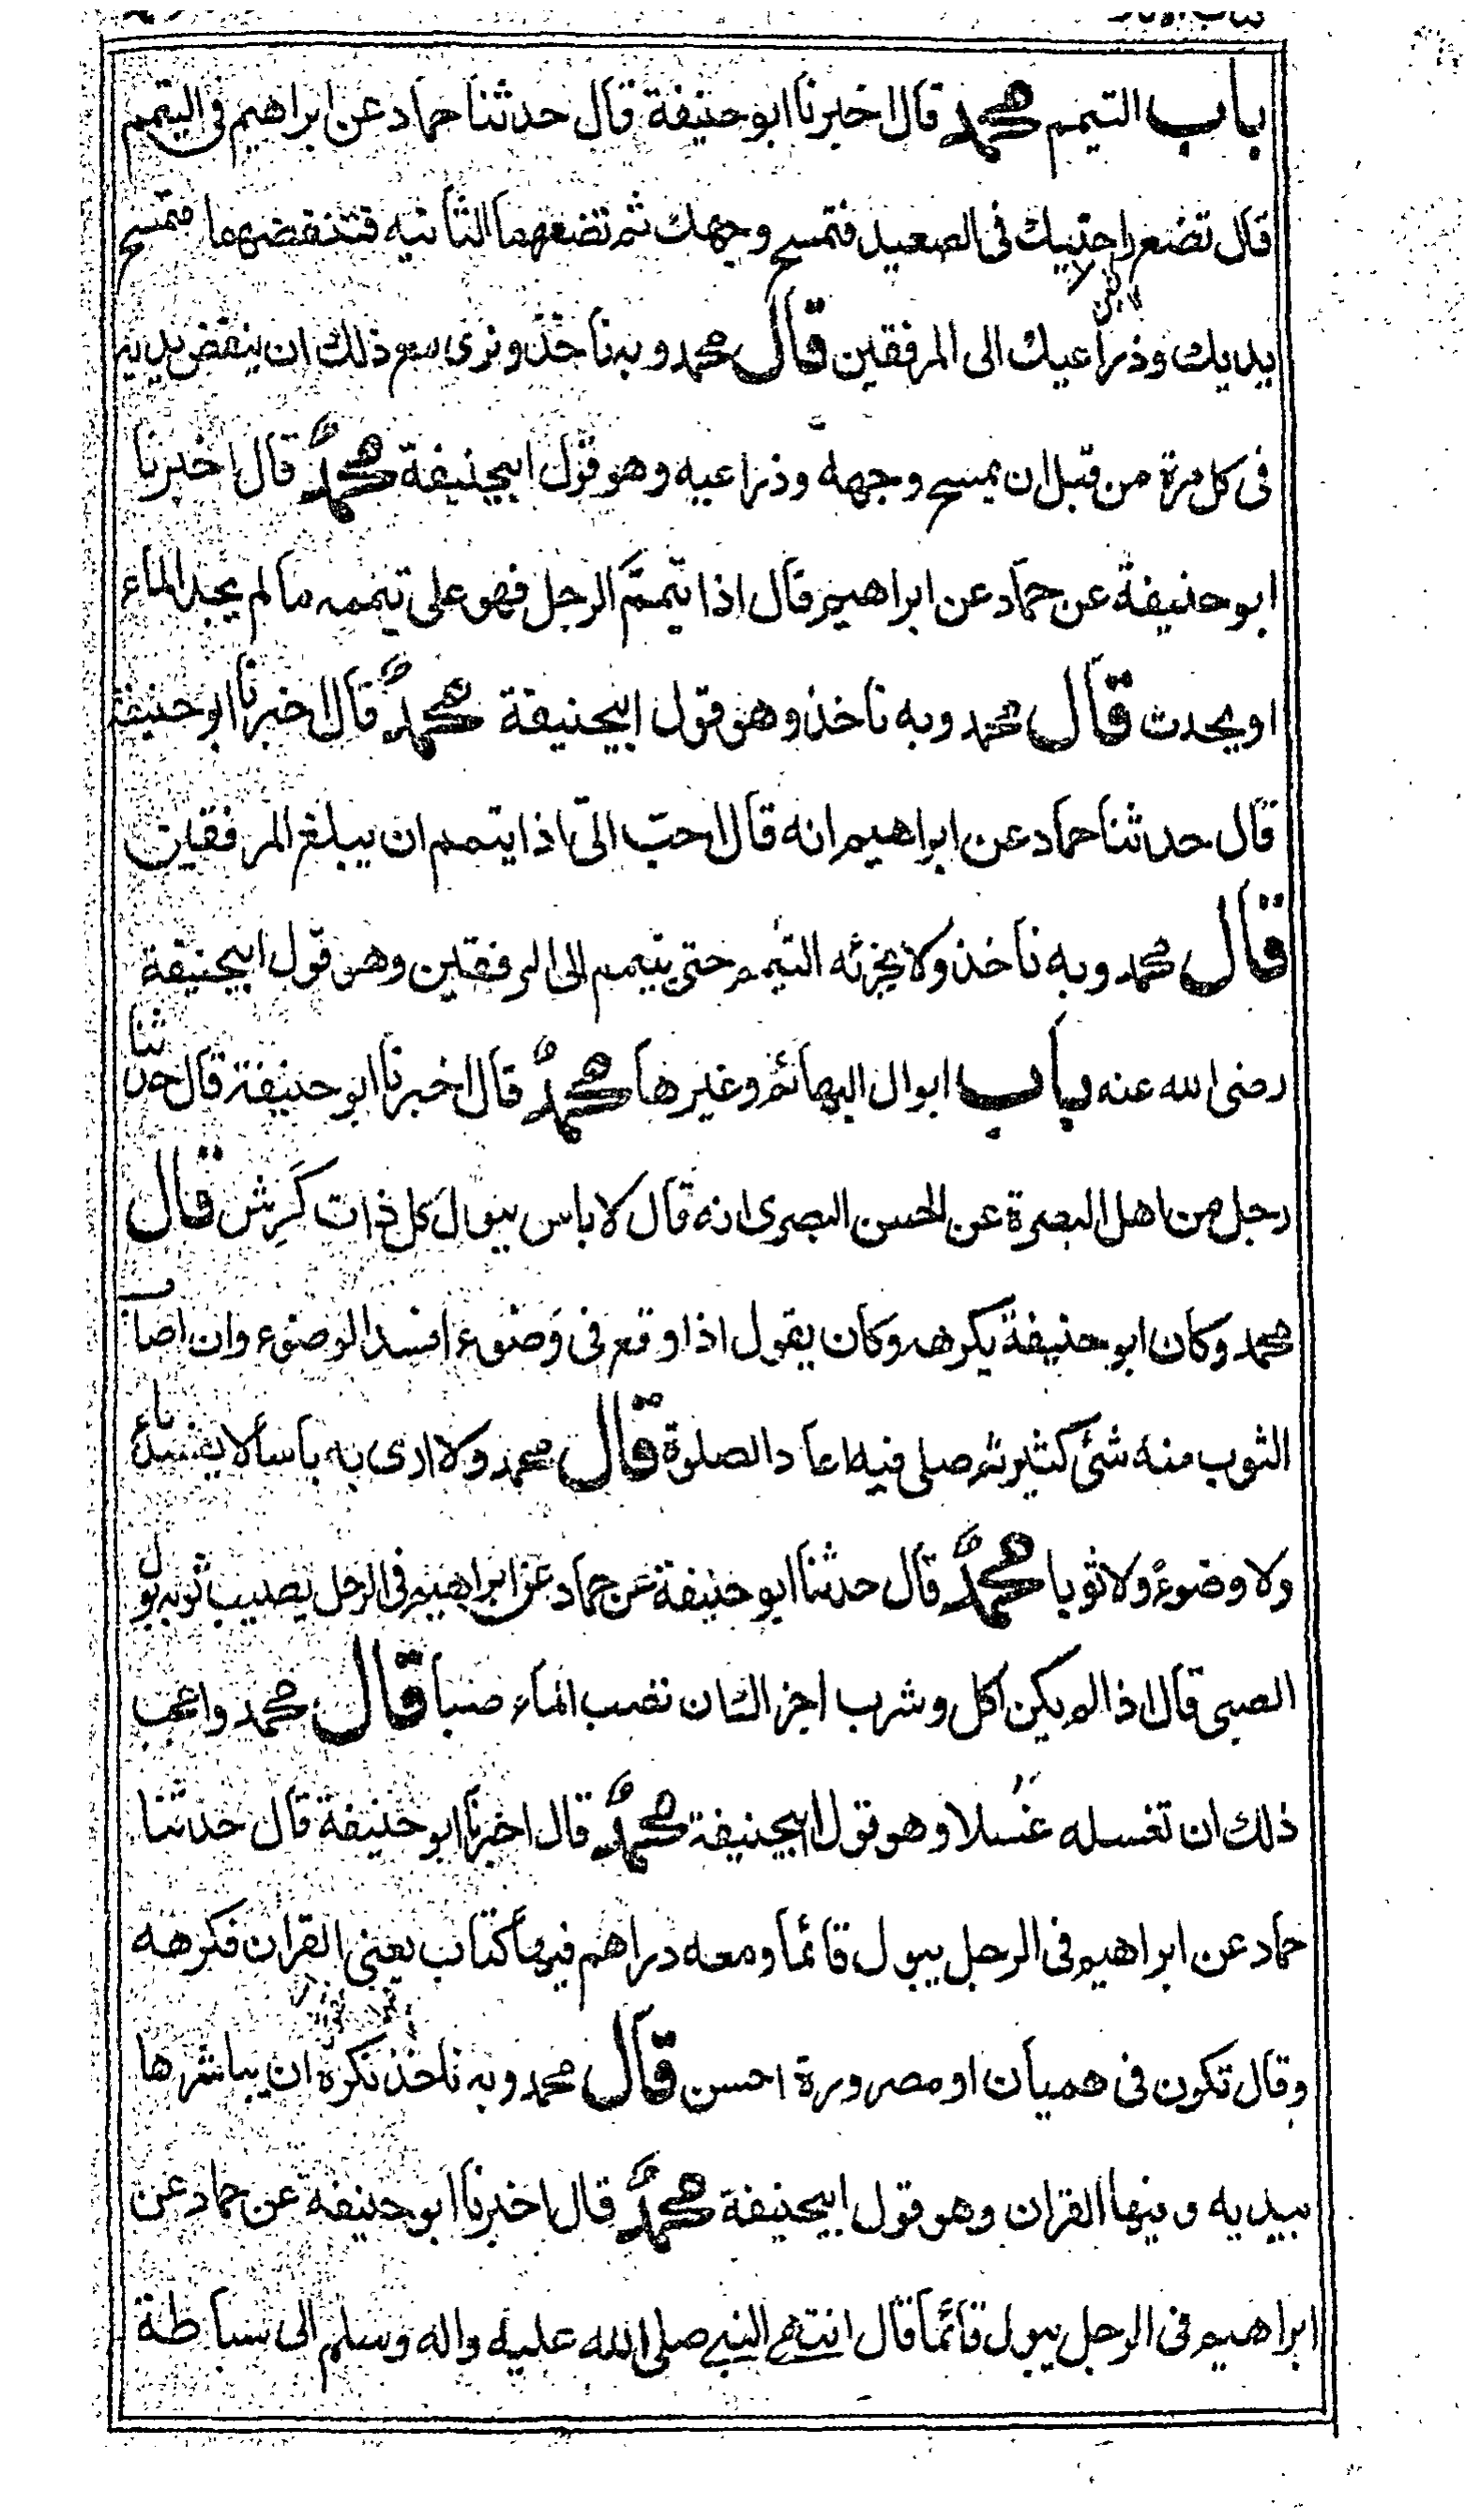 باب التيمم محمد قال اخبرنا ابو حنيفة قال حدثنا حماد عن ابراهيم فى التيمم
قال تضع راحتيك فى الصعيد فتمسح وجهك ثم تضعهما الثانيه فتنفضهما فتمسح
يديك وذراعيك الى المرفقين قال محمد وبه ناخذ ونرى مع ذلك ان ينفض يديه
فى كل مرة من قبل ان يمسح وجهه وذراعيه وهو قول ابيحنيفة محمدٌ قال اخبرنا
ابو حنيفة عن حماد عن ابراهيم قال اذا تيمّم الرجل فهو على تيممه ما لم يجد الماء
او يحدث قال محمد وبه ناخذ وهو قول ابيحنيفة محمدٌ قال اخبرنا ابو حنيفة
قال حدثنا حماد عن ابراهيم انه قال احبّ الىّ اذا يتمم ان يبلغ المرفقين
قال محمد وبه ناخذ ولا يجزئه التيمم حتى يتيمم الى المرفقين وهو قول ابيحنيفة
رضى الله عنه باب ابوال البهائم وغيرها محمدٌ قال اخبرنا ابو حنيفة قال حدثنا
رجل من اهل البصرة عن الحسن البصرى انه قال لا باس ببول كل ذات كَرِش قال
محمد وكان ابو حنيفة يكرهه وكان يقول اذا وقع فى وَضوء افسد الوضوء وان اصاب
الثوب منه شئ كثير ثم صلى فيه اعاد الصلوة قال محمد ولا ارى به باسا لا يفسد ماء
ولا وضوءً ولا ثوبا محمدٌ قال حدثنا ابو حنيفة عن حماد عن ابراهيم فى الرجل يصيب ثوبه بول
الصبى قال اذا لم يكن اكل وشرب اجزاك ان تصب الماء صبا قال محمد واعجب
ذلك ان تغسله غَسلا وهو قول ابيحنيفة محمدٌ قال اخبرنا ابو حنيفة قال حدثنا
حماد عن ابراهيم فى الرجل يبول قائما ومعه دراهم فيها كتاب يعنى القران فكرهه
وقال تكون فى هميان او مصرورة احسن قال محمد وبه ناخذ نكره ان يباشرها
بيديه وفيها القران وهو قول ابيحنيفة محمدٌ قال اخبرنا ابو حنيفة عن حماد عن
ابراهيم فى الرجل يبول قائما قال انتهى النبى صلى الله عليه واله وسلم الى سباطة